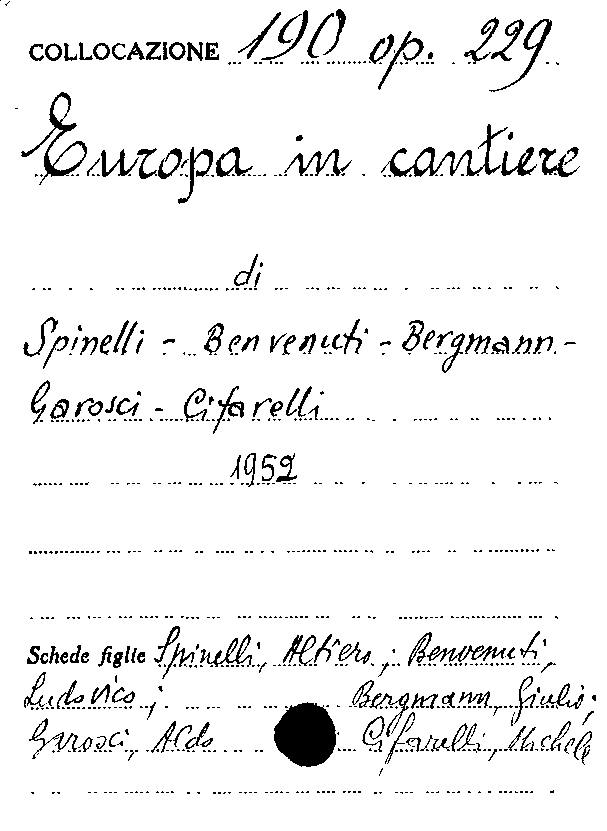 COLLOCAZIONE 190 op. 229
Europa in cantiere
di
Spinelli - Benvenuti - Bergmann -
Garosci - Cifarelli
1952
Schede figlie Spinelli, Altiero; Benvenuti,
Ludovico; Bergmann, Giulio;
Garosci, Aldo Cifarelli, Michele